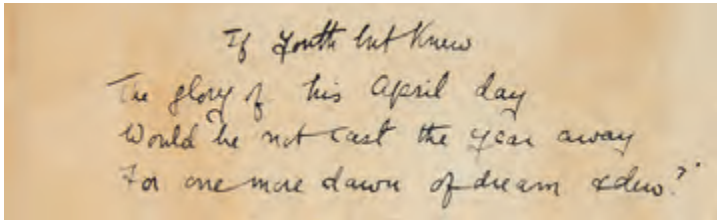 If Youth but Knew
The glory of his April day
Would he not cast the year away
For one more dawn of dream & dew?